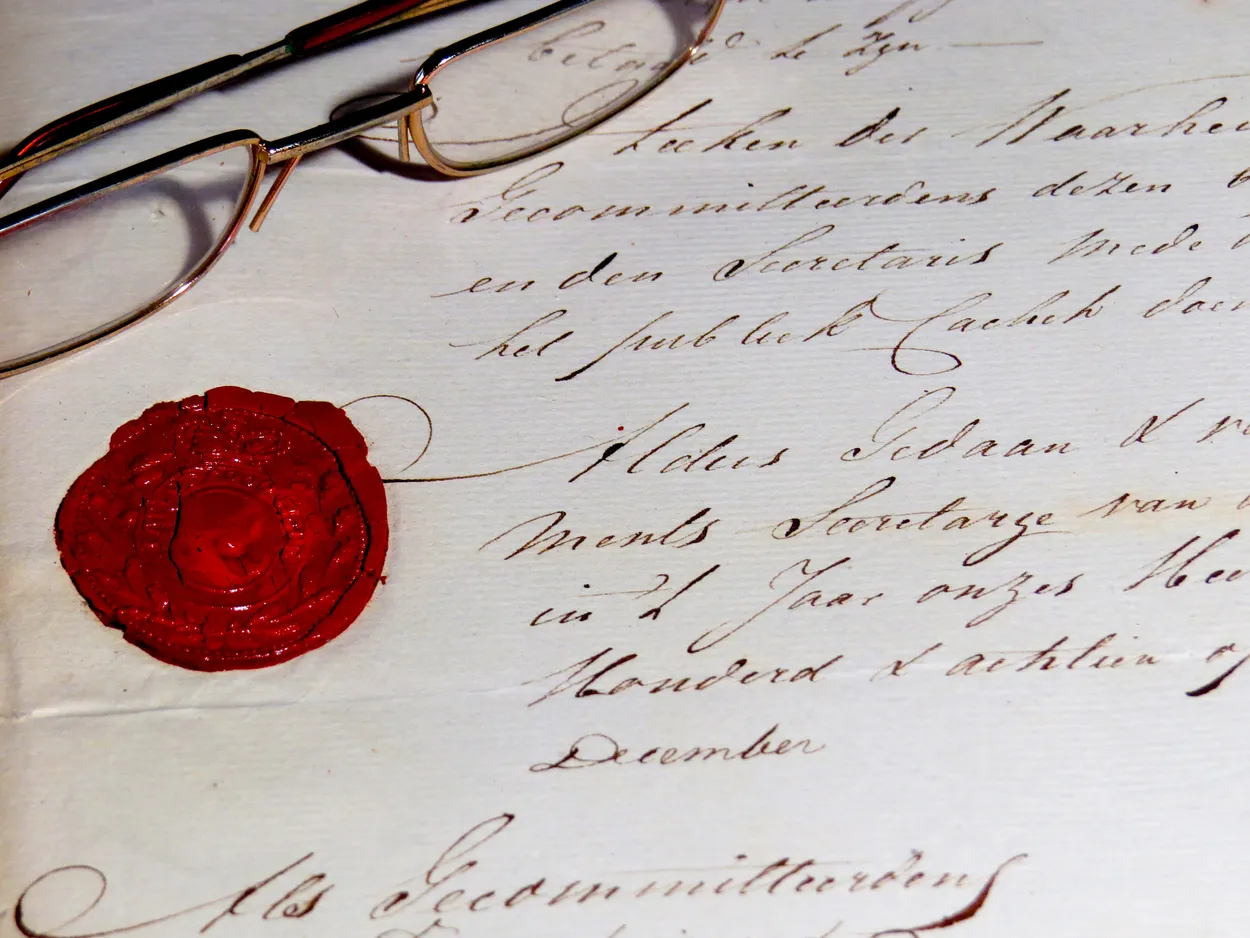 betaald te zyn —
teeken der Waarhei
Gecommitteerdens dezen
en den Secretaris mede
het publiek Cachet doen
Aldus Gedaan &
ments Secretarye van
in't Jaar onzes Hee
Honderd & achtien op
December
Als Gecommitteerdens